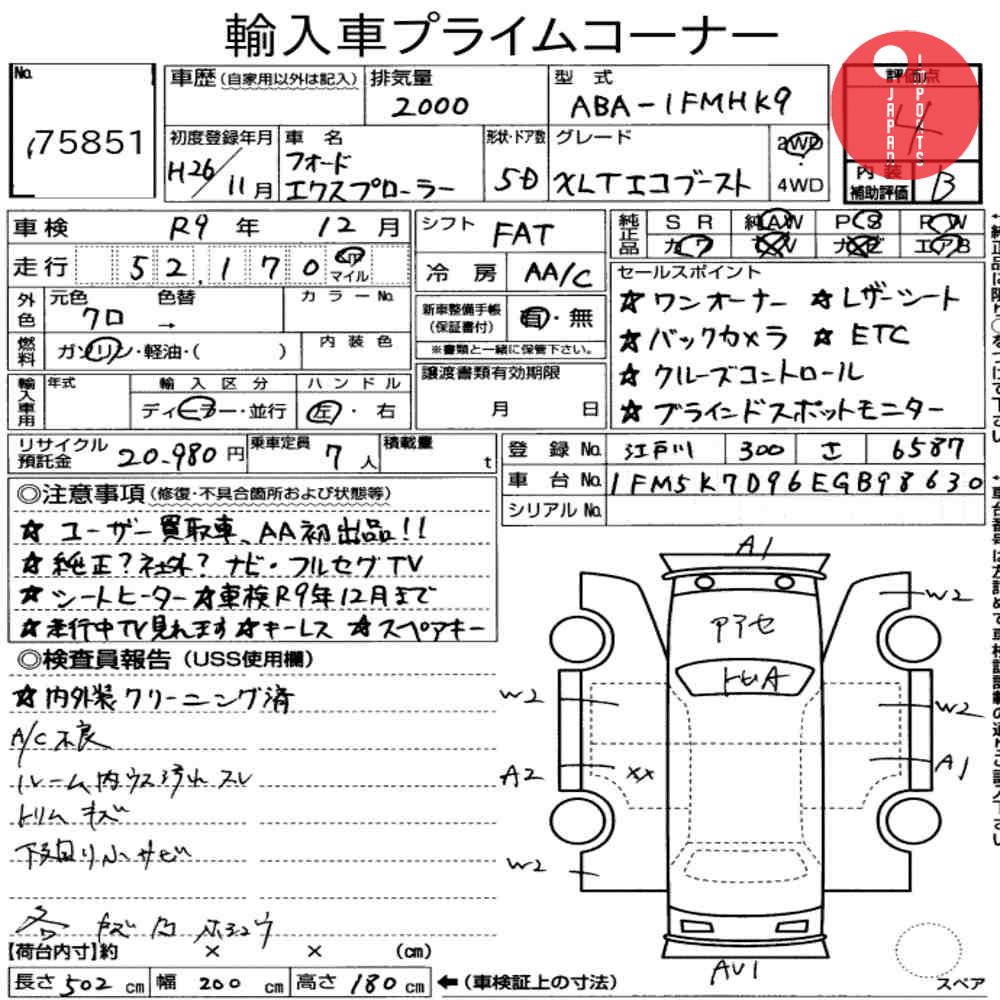 輸入車プライムコーナー
No. 75851
車歴(自家用以外は記入)
排気量 2000
型式 ABA-1FMHK9
評価点 4
JAPAN IMPORTS
初度登録年月 H26/11月
車名 フォード エクスプローラー
形状・ドア数 5D
グレード XLTエコブースト
2WD
4WD
内装補助評価 B
車検 R9年 12月
走行 52,170 km マイル
シフト FAT
冷房 AA/C
純正品 SR 純AW PS PW
カワ ナビ エアB
外色 元色 クロ 色替 → カラーNo.
燃料 ガソリン・軽油・( )
内装色
新車整備手帳(保証書付) 有・無
※書類と一緒に保管下さい。
セールスポイント
☆ワンオーナー ☆レザーシート
☆バックカメラ ☆ETC
☆クルーズコントロール
☆ブラインドスポットモニター
輸入車用 年式
輸入区分 ディーラー・並行
ハンドル 左・右
譲渡書類有効期限
月 日
リサイクル預託金 20.980円
乗車定員 7人
積載量 t
登録No. 江戸川 300 さ 6587
車台No. 1FM5K7D96EGB98630
シリアルNo.
◎注意事項(修復・不具合箇所および状態等)
☆ユーザー買取車、AA初出品!!
☆純正?社外?ナビ・フルセグTV
☆シートヒーター☆車検R9年12月まで
☆走行中TV見れます☆キーレス ☆スペアキー
◎検査員報告(USS使用欄)
☆内外装クリーニング済
A/C不良
ルーム内ウス汚れ スレ
トリムキズ
下回り小サビ
各 キズ凹
A1
W2
アアセ
トビA
W2
W2
A2
XX
A1
W2
AU1
スペア
【荷台内寸】約 × × (cm)
長さ502cm 幅200cm 高さ180cm ←(車検証上の寸法)